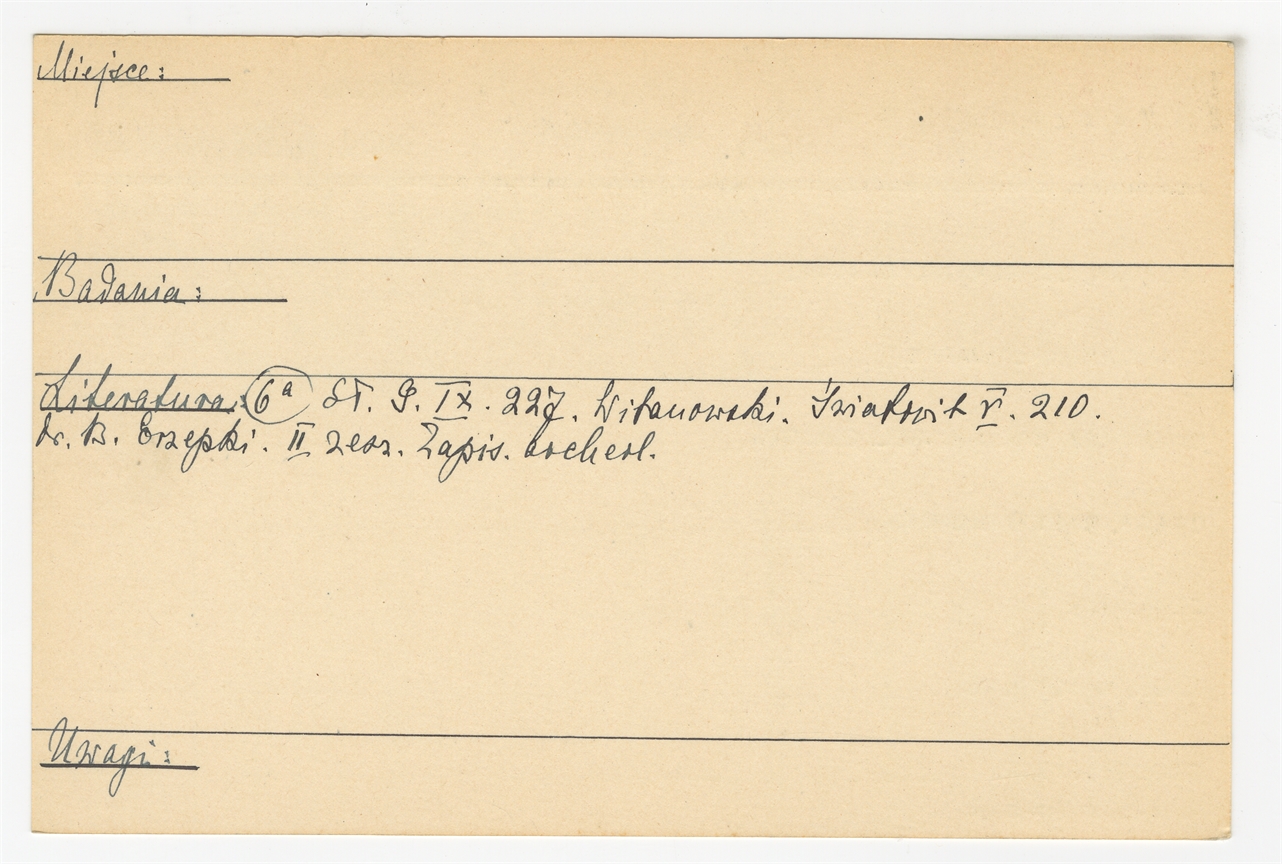 Miejsce:
Badania:
Literatura: 6a Sł. G. IX. 227. Witanowski. Światowit V. 210.
Dr. B. Erzepki. II zesz. Zapis. archeol.
Uwagi: